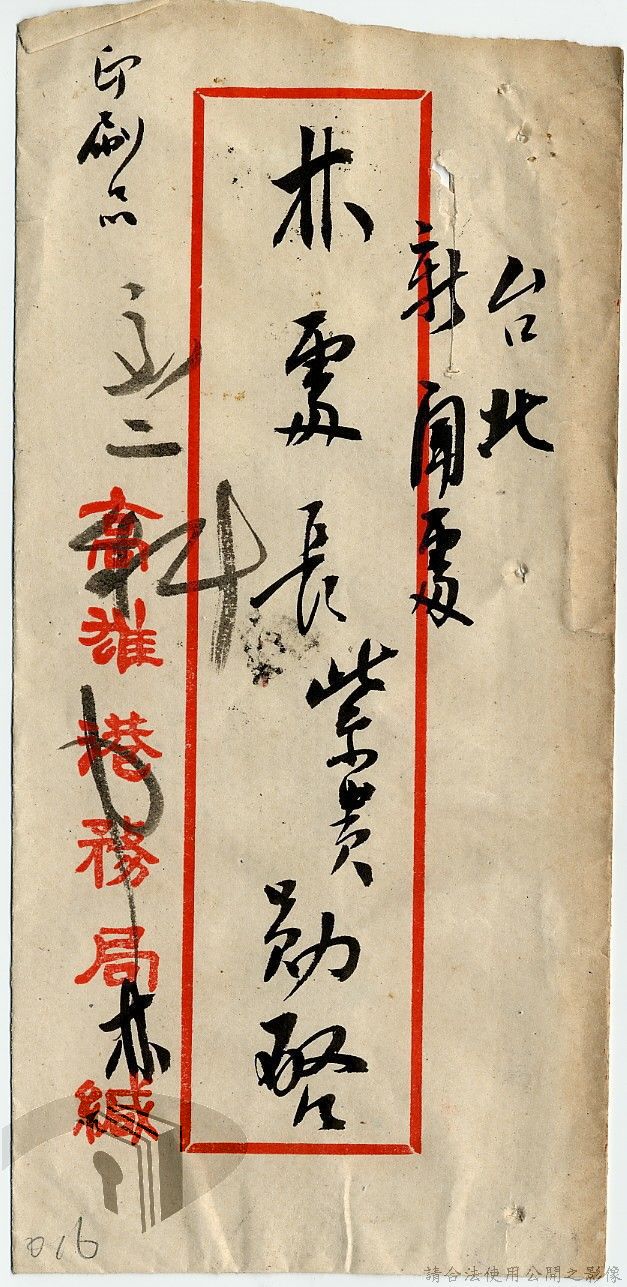 台北
新聞處
林處長紫貴勛啓
印刷品
高雄港務局 林 緘
二
016
請合法使用公開之影像